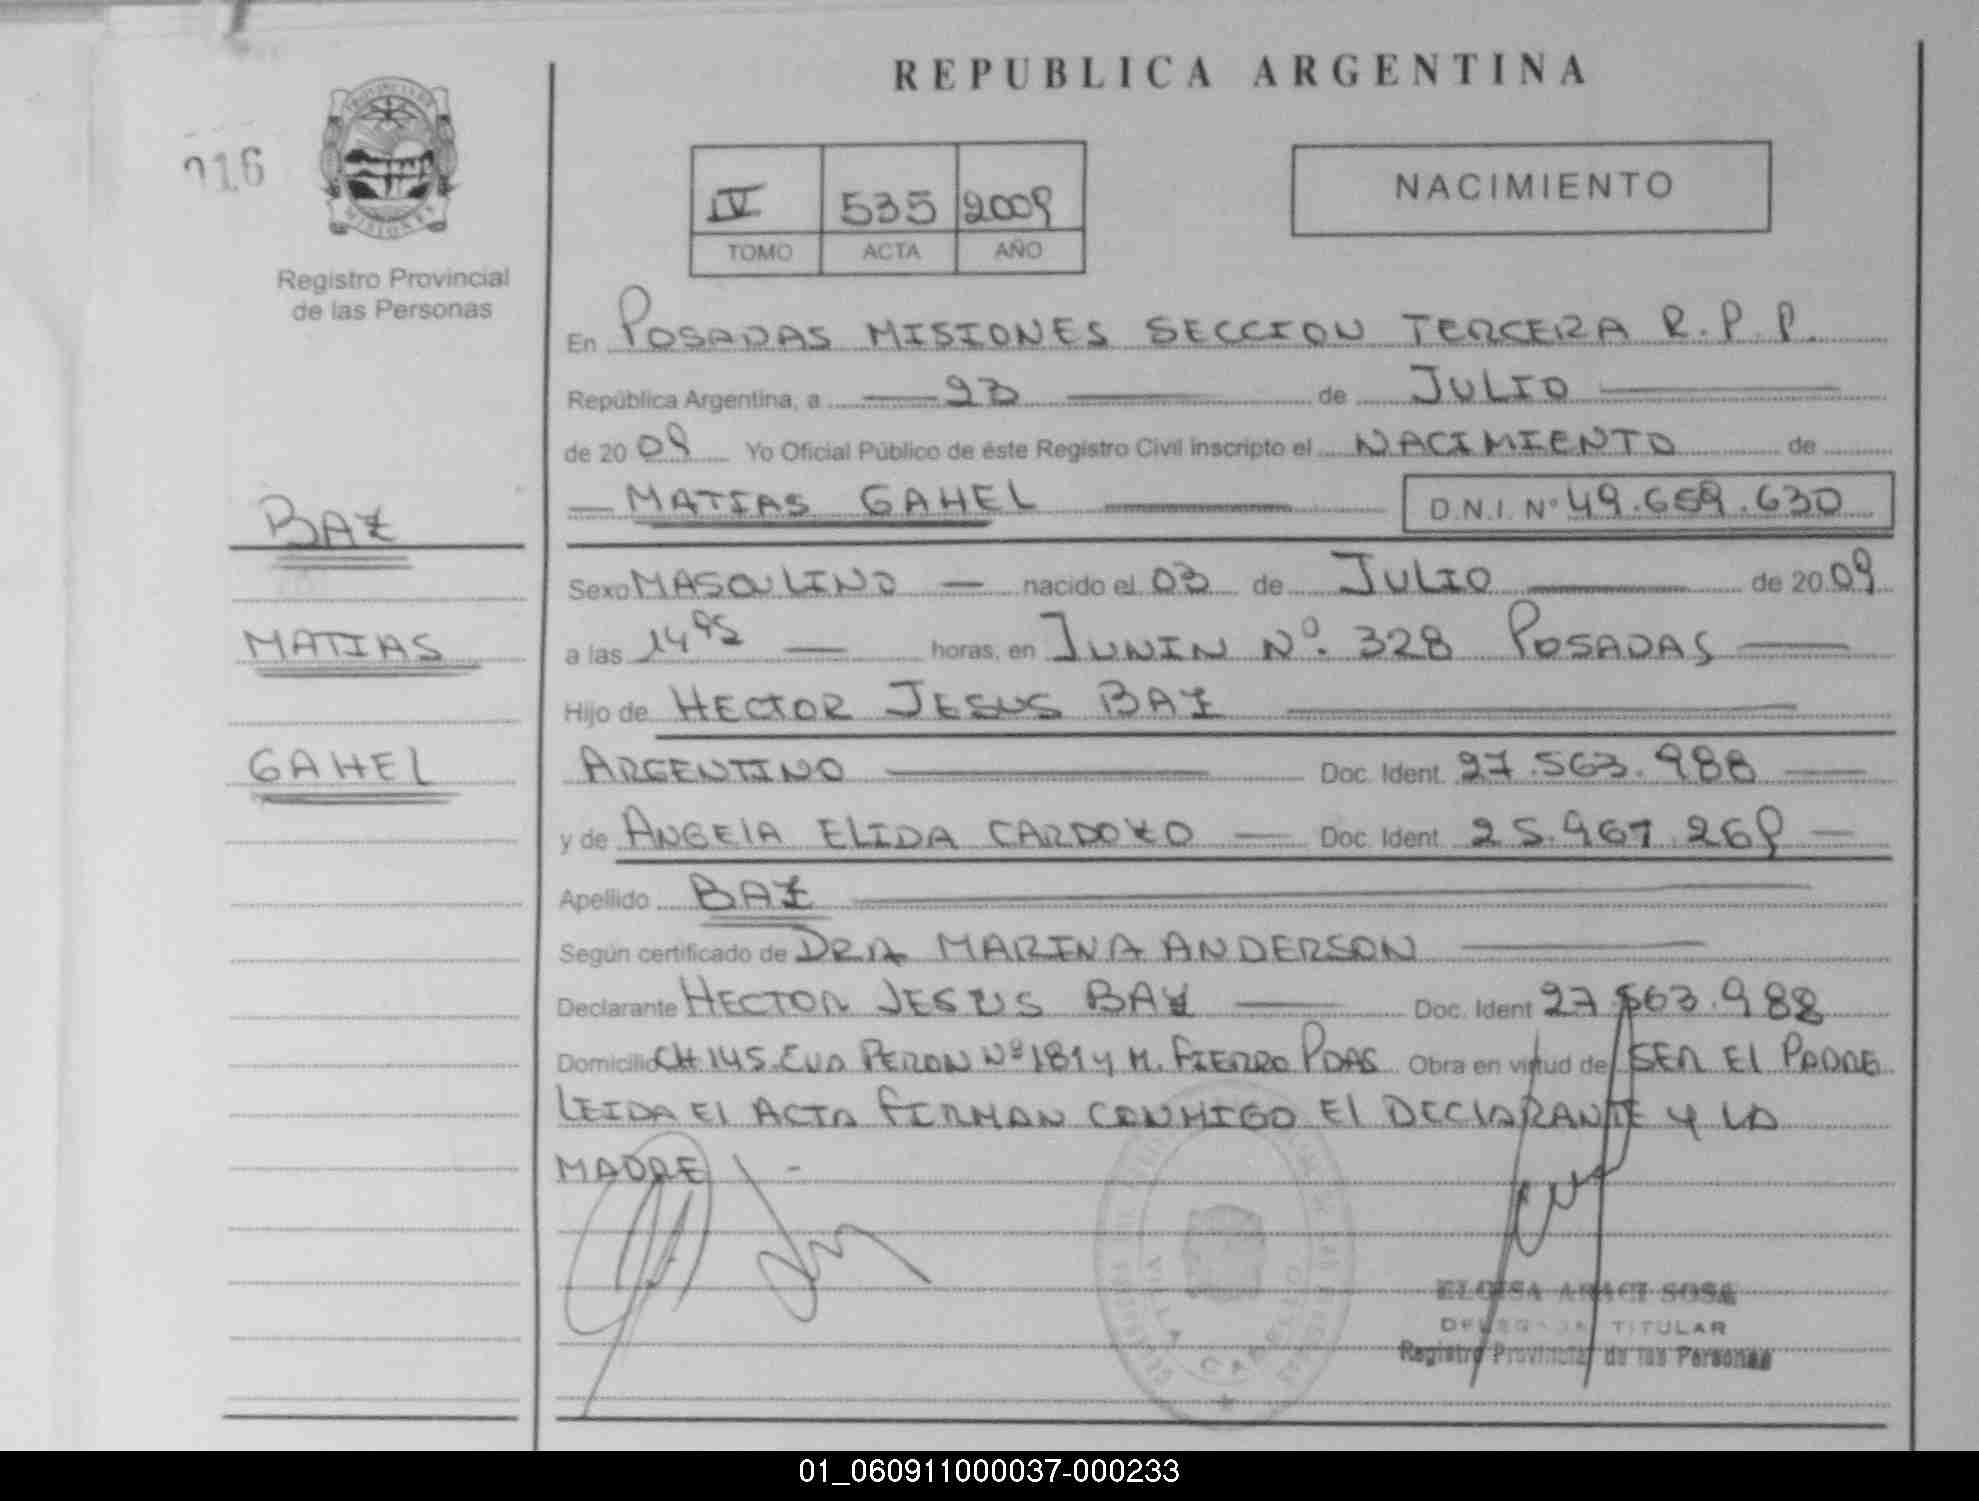 REPUBLICA ARGENTINA
016
PROVINCIA DE
MISIONES
Registro Provincial
de las Personas
IV 535 2009
TOMO ACTA AÑO
NACIMIENTO
En POSADAS MISIONES SECCION TERCERA R.P.P.
República Argentina, a 23 de JULIO
de 2009 Yo Oficial Público de éste Registro Civil inscripto el NACIMIENTO de
MATIAS GAHEL D.N.I. Nº 49.659.630
BAZ
MATIAS
GAHEL
Sexo MASCULINO nacido el 03 de JULIO de 2009
a las 14 horas, en JUNIN Nº. 328 POSADAS
Hijo de HECTOR JESUS BAZ
ARGENTINO Doc. Ident. 27.563.988
y de ANGELA ELIDA CARDOZO Doc. Ident. 25.967.269
Apellido BAZ
Según certificado de DRA MARINA ANDERSON
Declarante HECTOR JESUS BAZ Doc. Ident 27.563.988
Domicilio CH 145. EVA PERON Nº 181 y M. FIERRO PDAS Obra en virtud de SER EL PADRE
LEIDA EL ACTA FIRMAN CONMIGO EL DECLARANTE Y LA
MADRE
ELOISA ARACI SOSA
DELEGADA TITULAR
Registro Provincial de las Personas
VILLA CABELLO
01_060911000037-000233